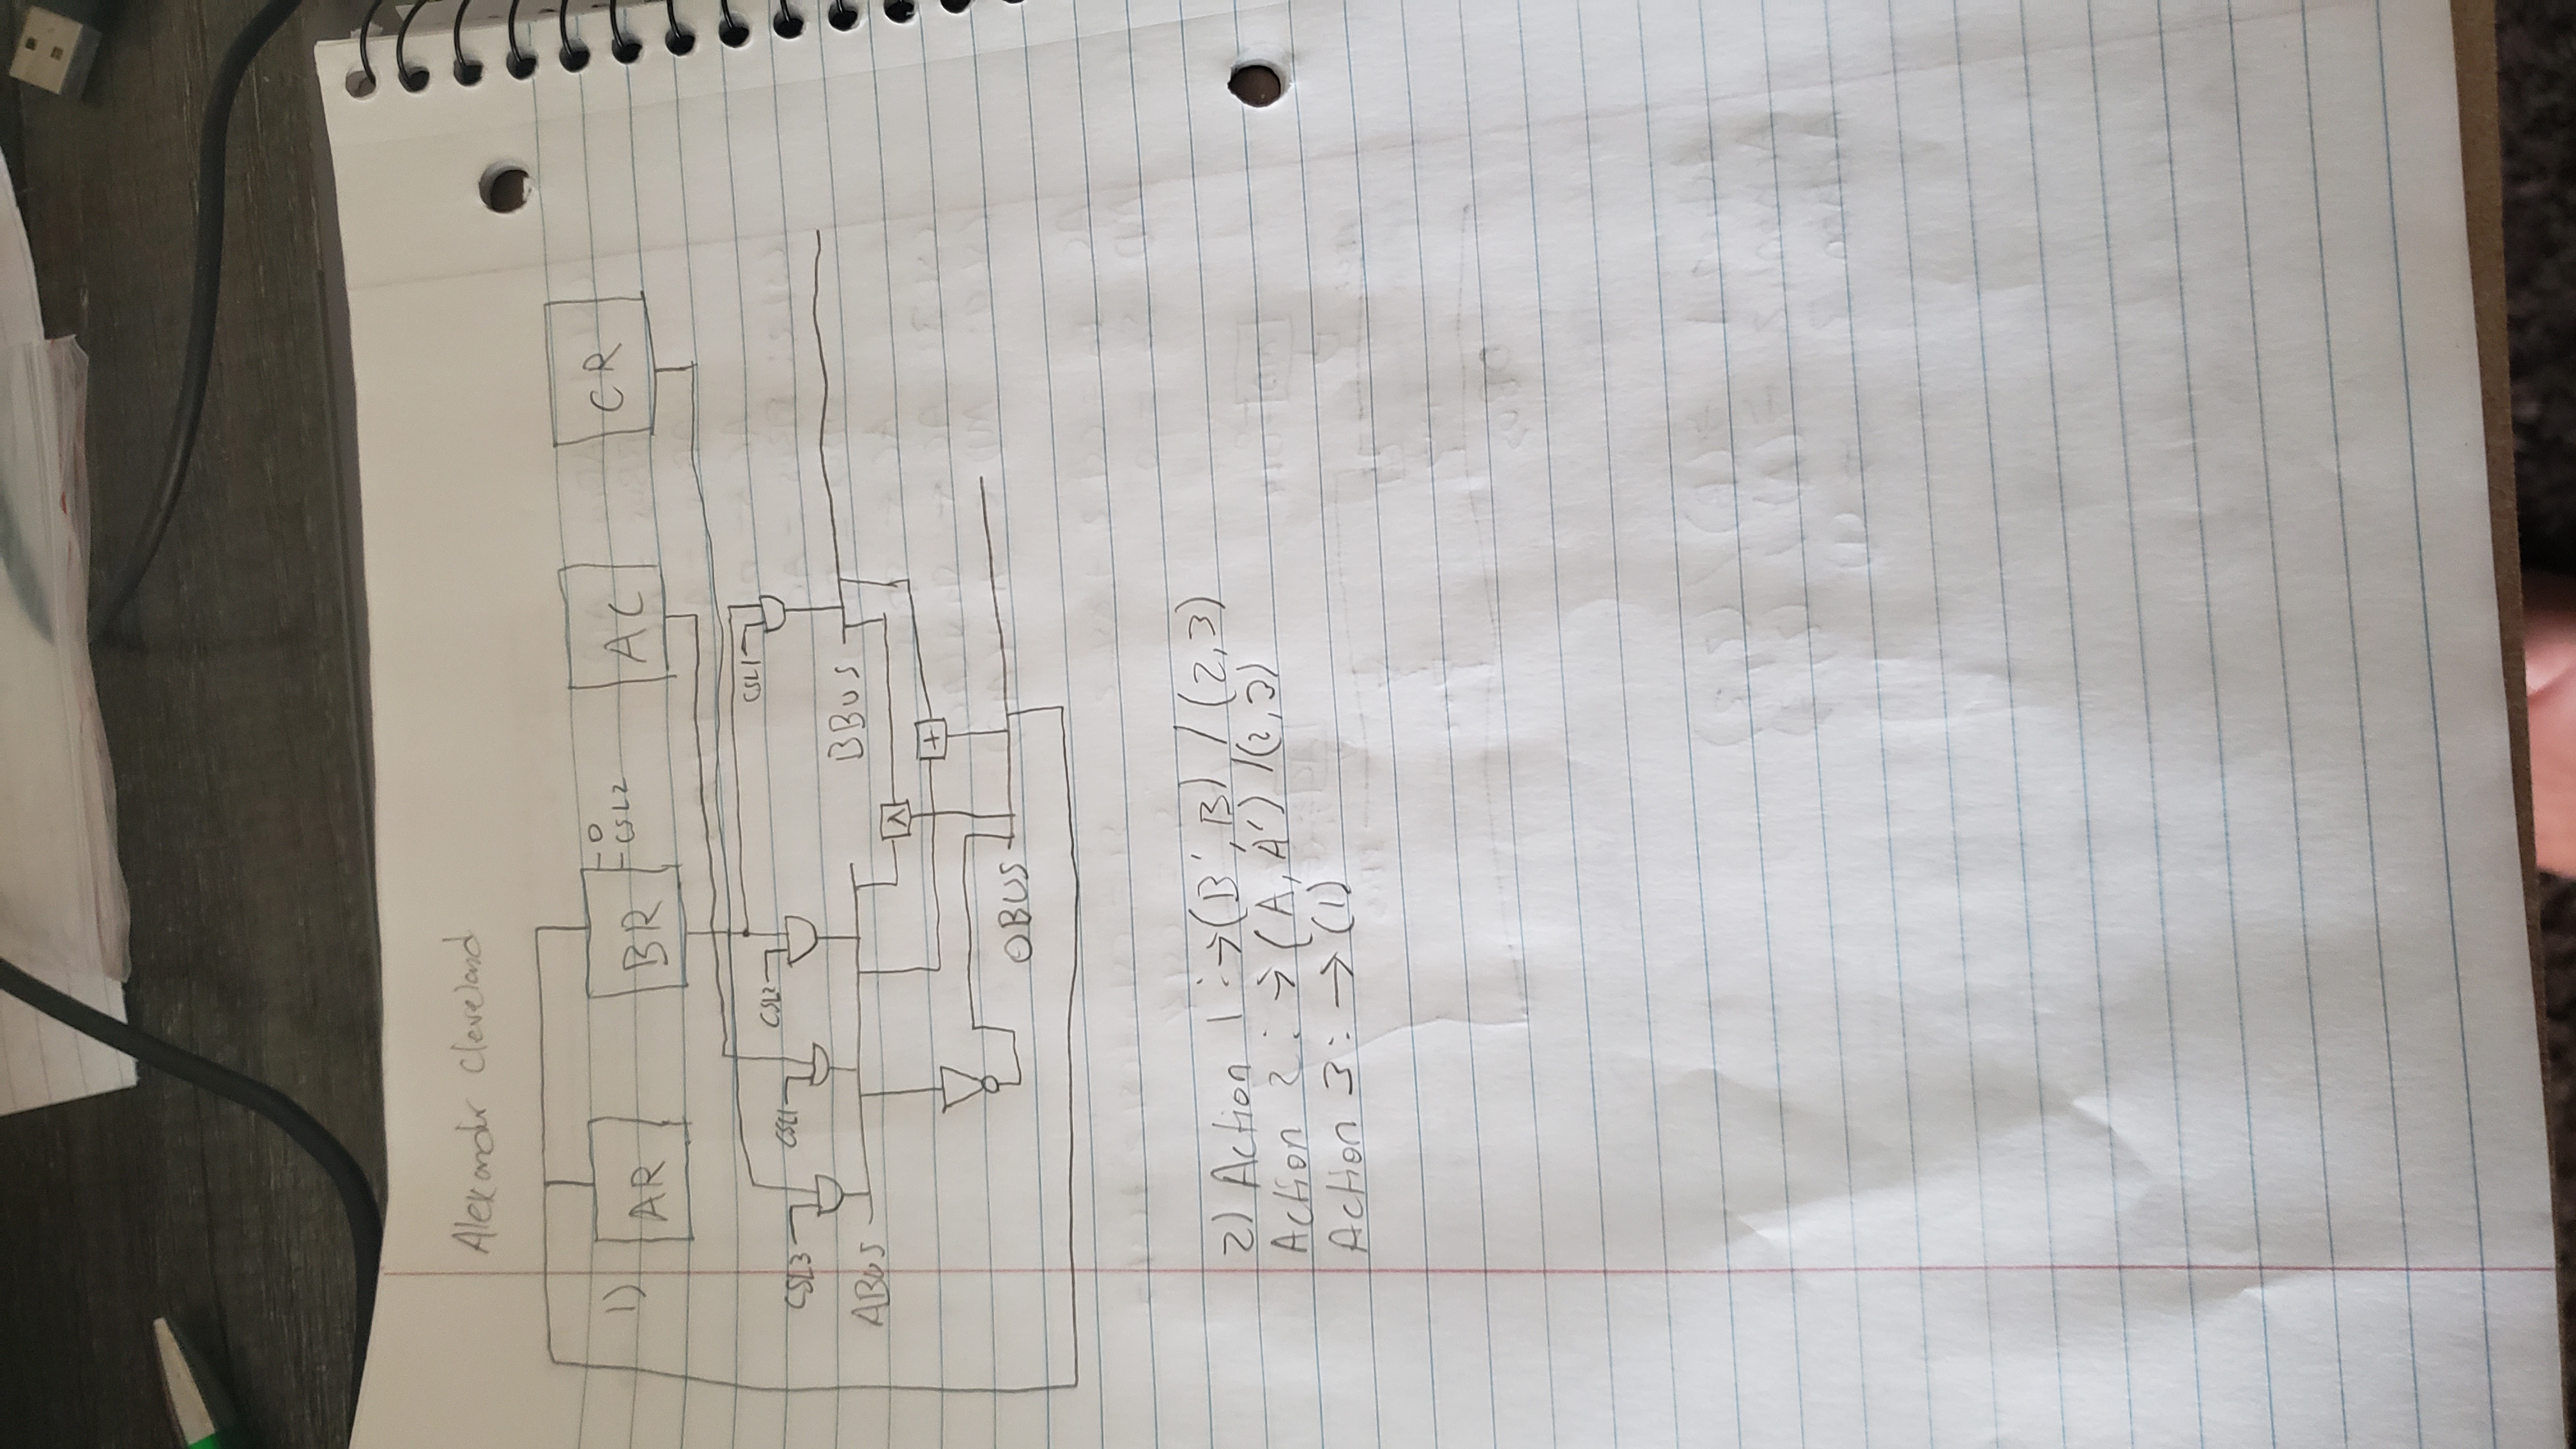 Alexander Cleveland
1) AR BR D AC CR
CSL2
CSL3 CSL1 CSL2 CSL1
ABUS BBUS
∧
+
OBUS
2) Action 1 :→(B', B) / (2,3)
Action 2: → (A, A') /(2,3)
Action 3: → (1)